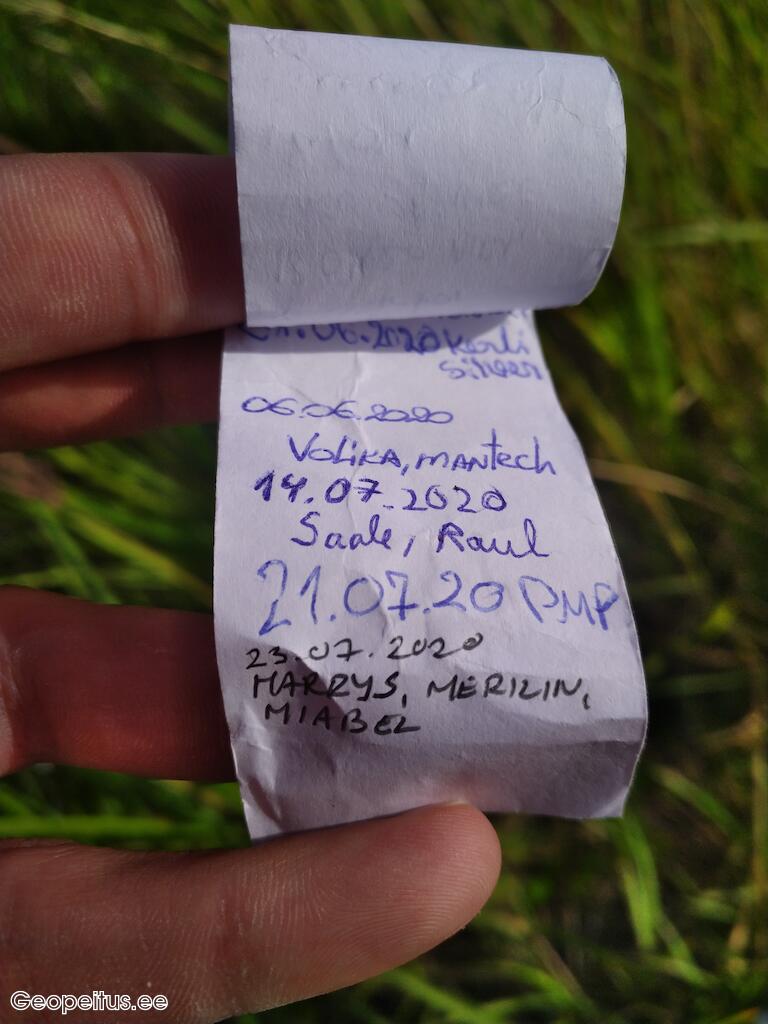 .06.2020 Kerli
Silver
06.06.2020
VOLIKA, MANTECH
14.07.2020
Saale, Raul
21.07.20 PMP
23.07.2020
MARRYS, MERILIN,
MIABEL
Geopeitus.ee